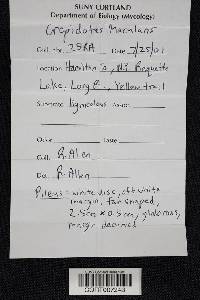 SUNY CORTLAND
Department of Biology (Mycology)
Crepidotus Maculans
Coll. No. 25RA Date 7/25/01
Location Hamilton Co, NY, Raquette
Lake, Long P., Yellow trail
Substrate lignicolous
Odor Taste
Coll. R. Allen
Det. R. Allen
Pileus = white disc, off white
margin, fan shaped,
2.5cm x 0.5cm, glabrous,
margin decurved
SUNY CORTLAND
CORT007243